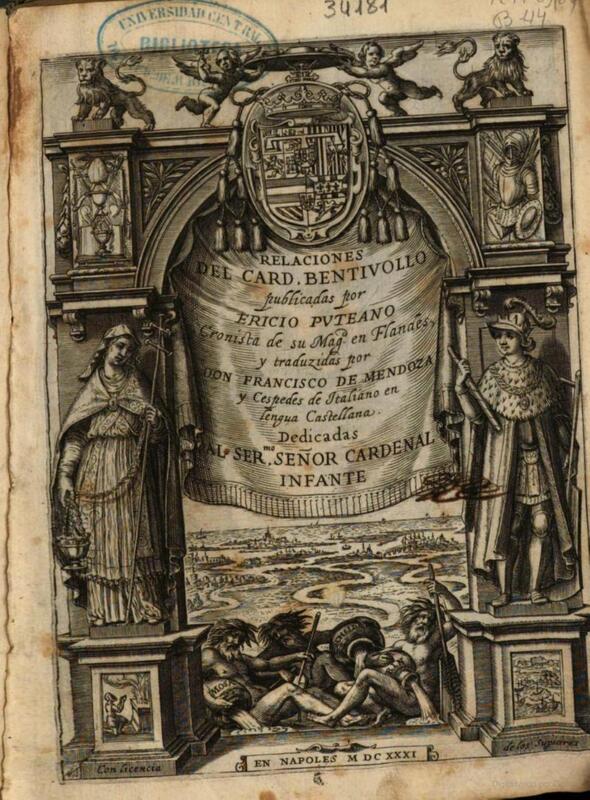 34181
UNIVERSIDAD CENTRAL
BIBLIOTECA
RELACIONES
DEL CARD. BENTIVOLLO
publicadas por
ERICIO PVTEANO
Cronista de su Magd. en Flandes,
y traduzidas por
DON FRANCISCO DE MENDOZA
y Cespedes de Italiano en
lengua Castellana.
Dedicadas
AL SER.mo SEÑOR CARDENAL
INFANTE
MOSA
Con licencia
de los Superiores
EN NAPOLES M DC XXXI